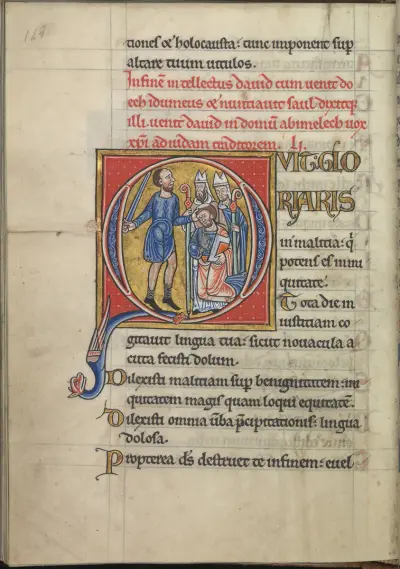 tiones & holocausta: tunc imponent sup
altare tuum uitulos.
Infinem intellectus dauid cum uenit do
ech idumeus & nuntiauit saul dixitq;
illi. uenit dauid in domum abimelech uox
xp̄i ad iudam traditorem. LI.
QUID GLO
RIARIS
in malitia: q̄
potens es ini
quitate.
Tota die in
iustitiam co
gitauit lingua tua: sicut nouacula a
cuta fecisti dolum.
Dilexisti malitiam sup benignitatem: ini
quitatem magis quam loqui equitatē.
Dilexisti omnia ūba p̄cipitationis: lingua
dolosa.
Propterea d̄s destruet te infinem: euel